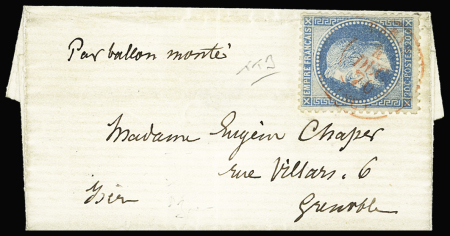 Par ballon monté
EMPIRE FRANÇAIS
Madame Eugèn Chaper
rue Villars. 6
Isère
Grenoble